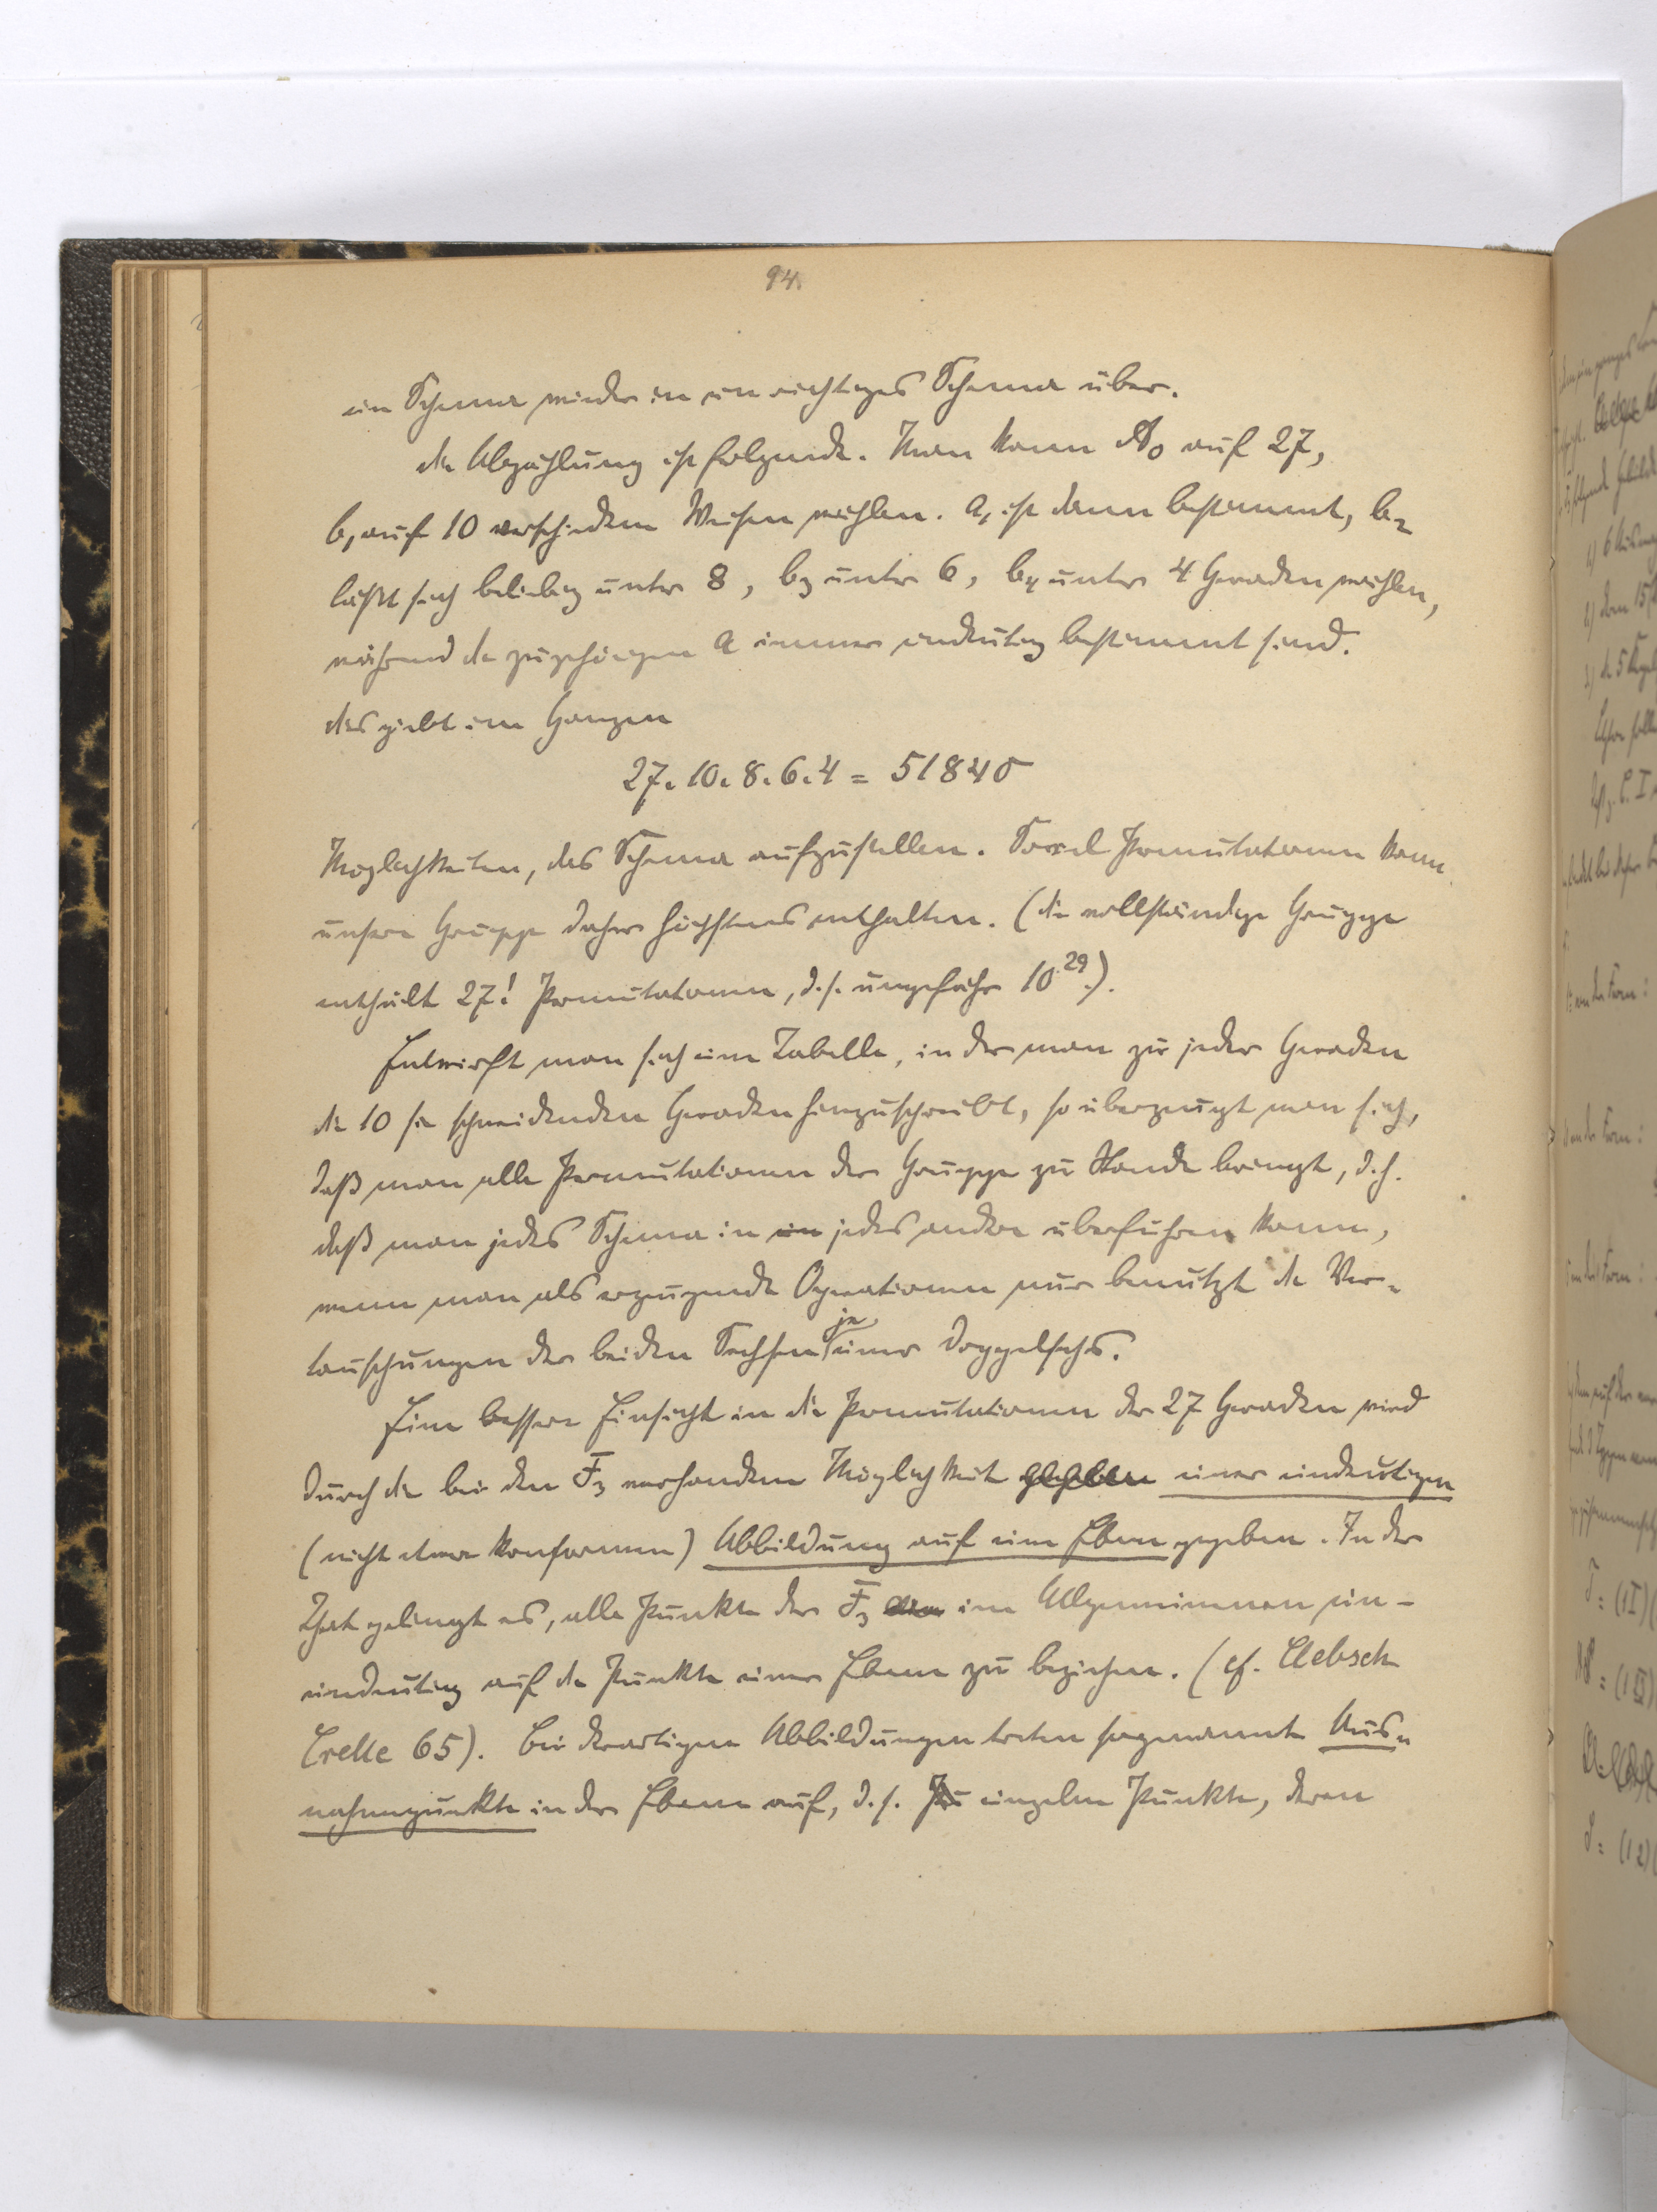 94.
ein Schema wieder in ein richtiges Schema über.
Die Abzählung ist folgende. Man kann A₀ auf 27,
b₁ auf 10 verschiedene Weisen wählen. a₁ ist dann bestimmt, b₂
läßt sich beliebig unter 8, b₃ unter 6, b₄ unter 4 Geraden wählen,
während die zugehörigen a immer eindeutig bestimmt sind.
Das giebt im Ganzen
27. 10. 8. 6. 4 = 51840
Möglichkeiten, das Schema aufzustellen. Soviel Permutationen kann
unsere Gruppe daher höchstens enthalten. (Die vollständige Gruppe
enthält 27! Permutationen, d. s. ungefähr 10²⁹.).
Entwirft man sich eine Tabelle, in der man zu jeder Geraden
die 10 sie schneidenden Geraden hinzuschreibt, so überzeugt man sich,
daß man alle Permutationen der Gruppe zu Stande bringt, d. h.
daß man jedes Schema in ein jedes andere überführen kann,
wenn man als erzeugende Operationen nur benutzt die Ver-
tauschungen der beiden Sechsen je einer Doppelsechs.
Eine bessere Einsicht in die Permutationen der 27 Geraden wird
durch die bei den F₃ vorhandene Möglichkeit gegeben einer eindeutigen
(nicht etwa konformen) Abbildung auf eine Ebene gegeben. In der
That gelingt es, alle Punkte der F₃ im Allgemeinen ein-
eindeutig auf die Punkte einer Ebene zu beziehen. (cf. Clebsch
Crelle 65). Bei derartigen Abbildungen treten sogenannte Aus-
nahmepunkte in der Ebene auf, d. s. Pu einzelne Punkte, deren